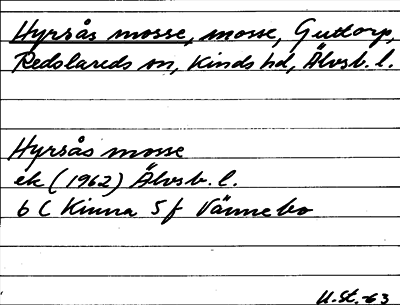 Hyrsås mosse, mosse, Gudorp,
Redslareds sn, Kinds hd, Älvsb. l.
Hyrsås mosse
ek (1962) Älvsb. l.
6 C Kinna 5 f Vännebo
U.St.-63